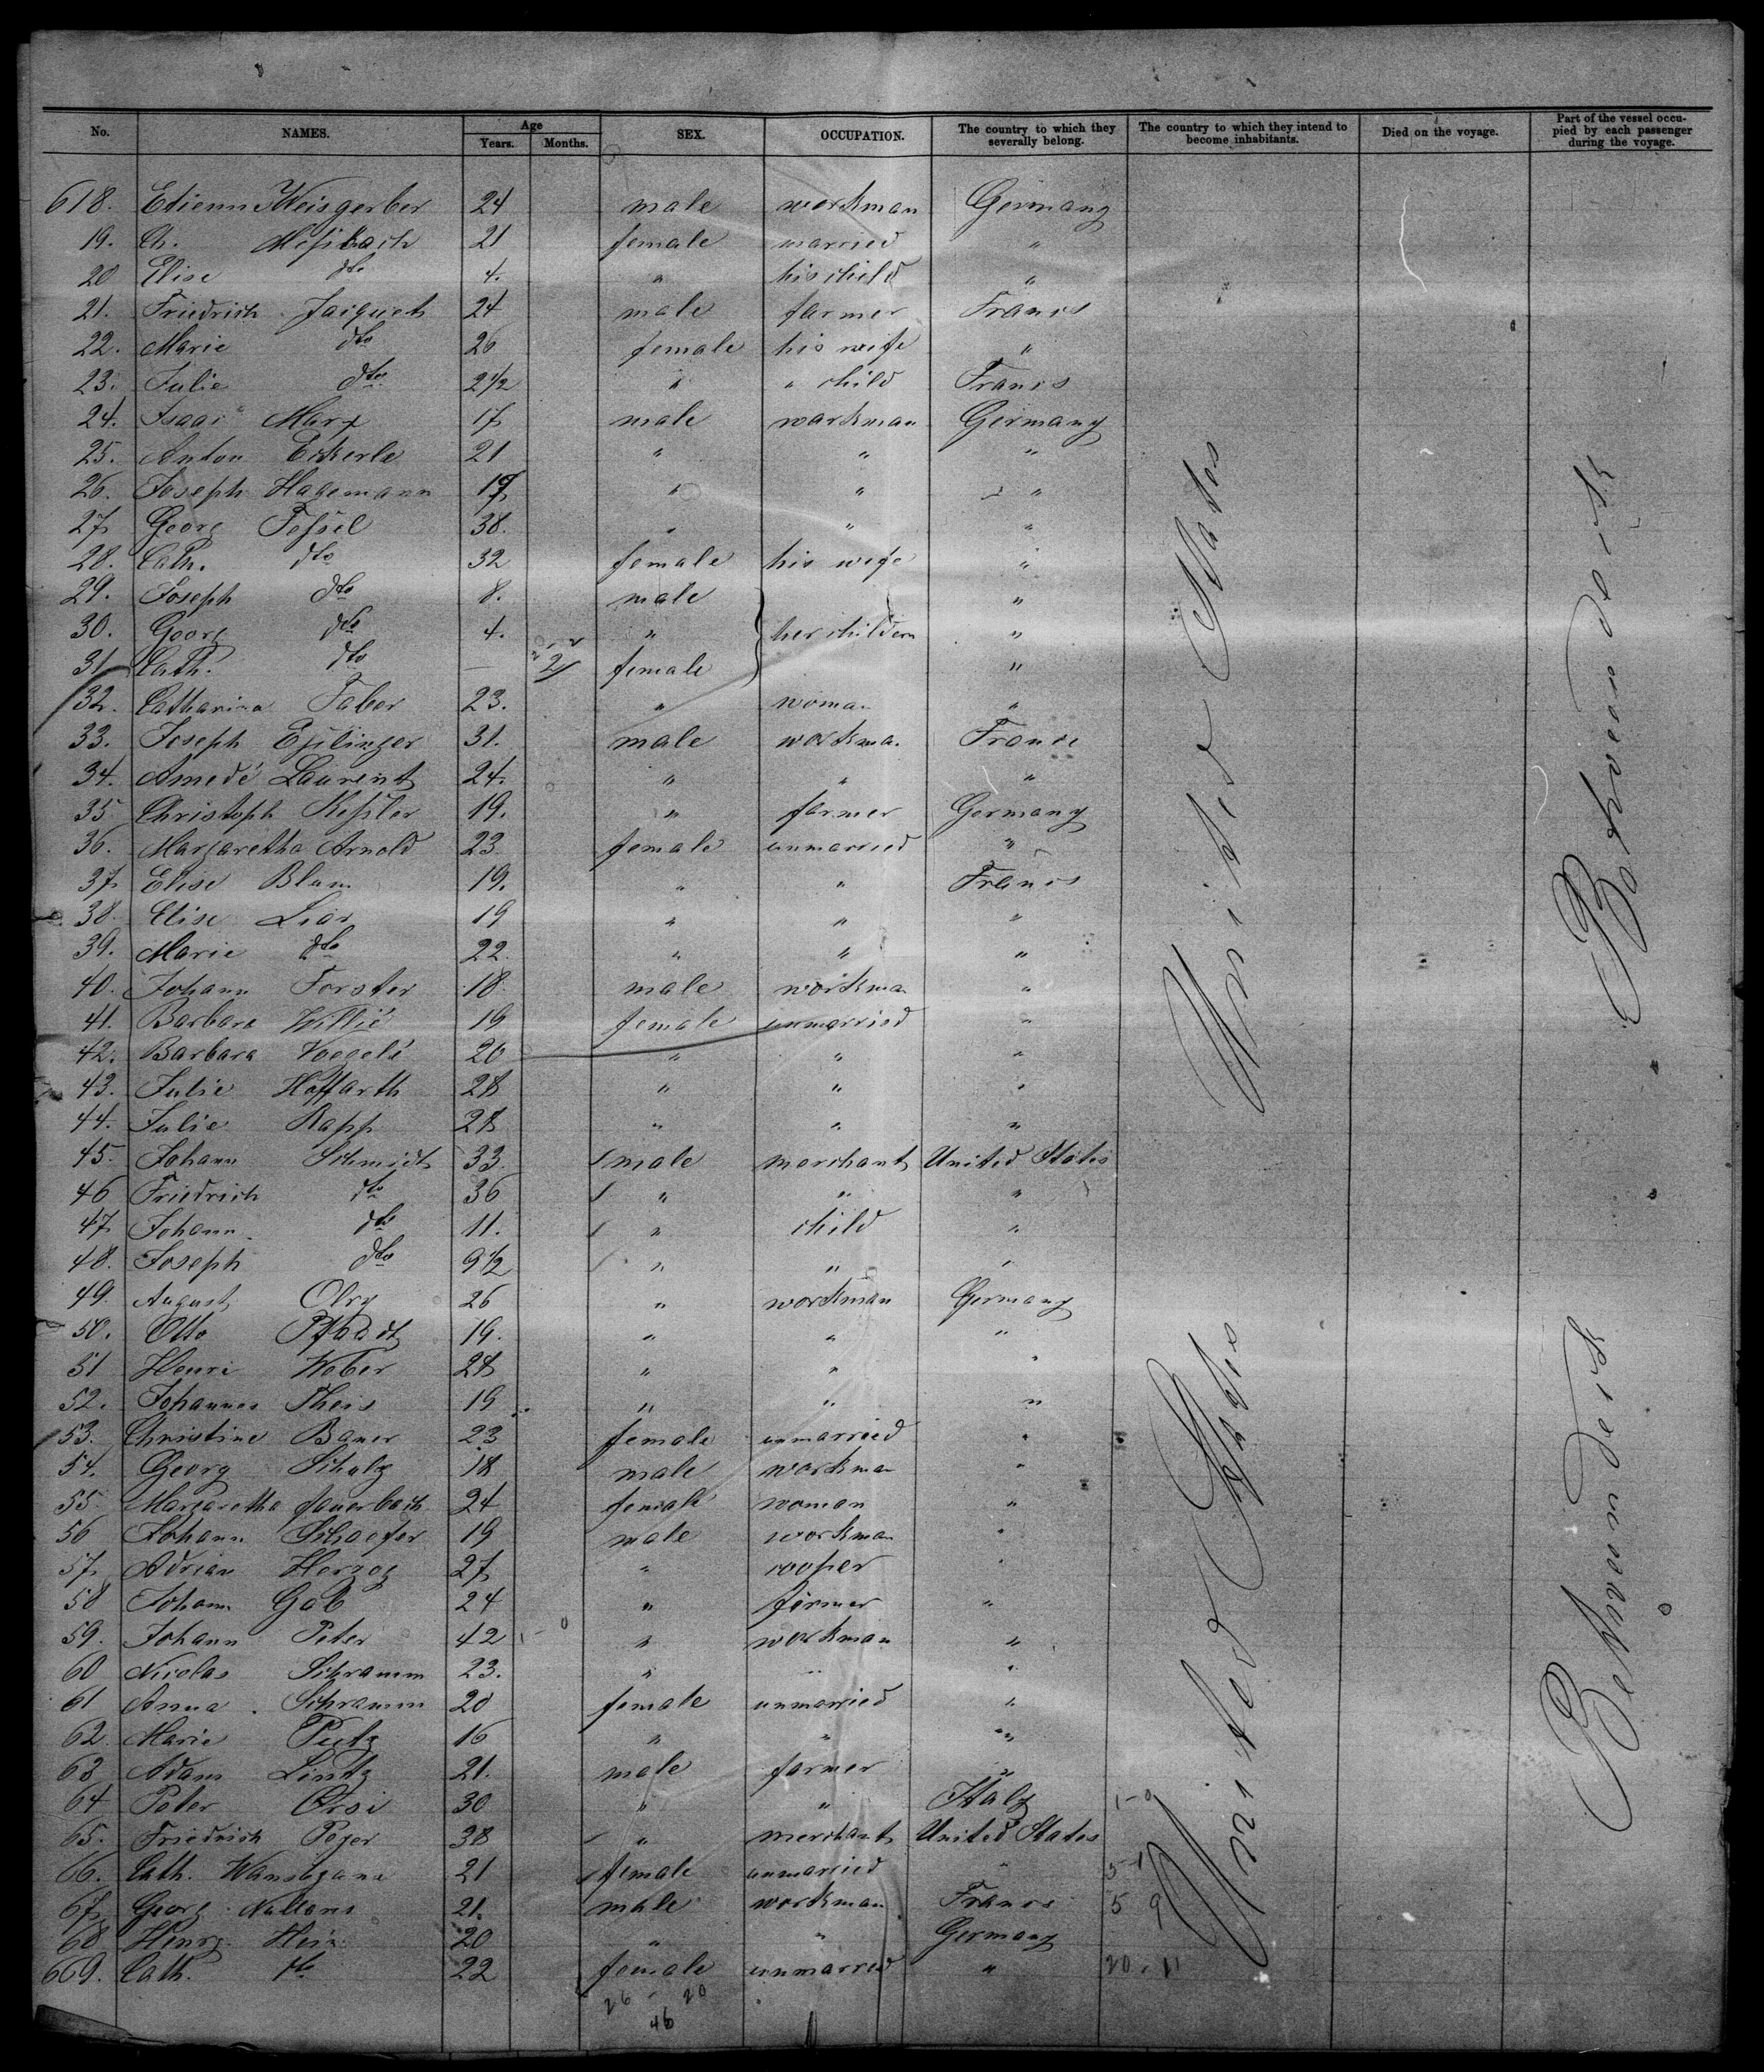 No. NAMES. Age Years. Months. SEX. OCCUPATION. The country to which they severally belong. The country to which they intend to become inhabitants. Died on the voyage. Part of the vessel occupied by each passenger during the voyage.
618. Etienne Weisgerber 24 male workman Germany
19. Ch. 21 female married "
20 Elise dto 4. " his child "
21. Friedrich Jaiquet 24 male farmer France
22. Marie dto 26 female his wife "
23. Julie dto 2 1/2 " " child France
24. Isaac Marx 17 male workman Germany
25. Anton Eckerle 21 " " "
26. Joseph Hagemann 19 " " "
27 Georg Fessel 38. " " "
28. Cath. dto 32 female his wife "
29. Joseph dto 8. male "
30. Georg dto 4. " her childern "
31 Cath. dto — 2 female "
32. Catharina Faber 23. " woman "
33. Joseph Esslinger 31. male workman France
34. Amedé Laurent 24. " " "
35 Christoph Kessler 19. " farmer Germany
36. Margaretha Arnold 23 female unmarried "
37 Elise Blum 19. " " France
38. Elise 19 " " "
39. Marie dto 22. " " "
40. Johann Forster 18 male workman "
41. Barbara Willié 19 female unmarried "
42. Barbara Voegelé 20 " " "
43. Julie Hoffarth 28 " " "
44. Julie Rapp 28 " " "
45. Johann Schmidt 33 male merchant United States
46 Friedrich dto 36 " " "
47 Johann dto 11. " child "
48. Joseph dto 9 1/2 " " "
49. August Olry 26 " workman Germany
50. Otto Pfadt 19. " " "
51 Henri Weber 28 " " "
52. Johannes Theis 19 " " "
53. Christine Bauer 23 female unmarried "
54. Georg Schulz 18 male workman "
55. Margaretha Jauerbach 24 female woman "
56 Johann Schaefer 19 male workman "
57 Adrian Herzog 27 " cooper "
58 Johann Gab 24 " farmer "
59. Johann Peter 42 " workman "
60 Nicolas Schramm 23. " " "
61 Anna Schramm 20 female unmarried "
62 Marie Putz 16 " " "
63 Adam Lintz 21. male farmer "
64 Peter Orsi 30 " " Italy
65. Friedrich Poyer 38 " merchant United States
66. Cath. 21 female unmarried "
67 Georg 21. male workman France 5 9
68 Henry 20 " " Germany
669. Cath. dto 22 female unmarried " 20 . 11
26 - 20
46
United States
United States
Between deck
Between deck